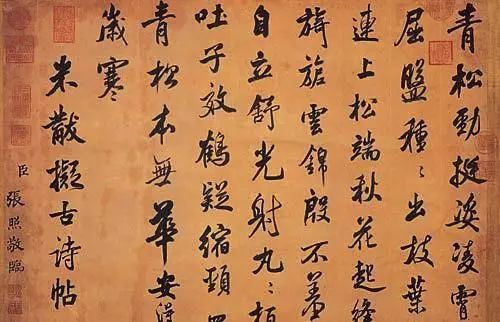 青松勁挺姿凌霄
屈盤種々出枝葉
連上松端秋花起絳
旖旎雲錦殷不羞
自立舒光射丸々柏
吐子效鶴疑縮頸
青松本無華安得
歲寒
米黻擬古詩帖
臣張照敬臨